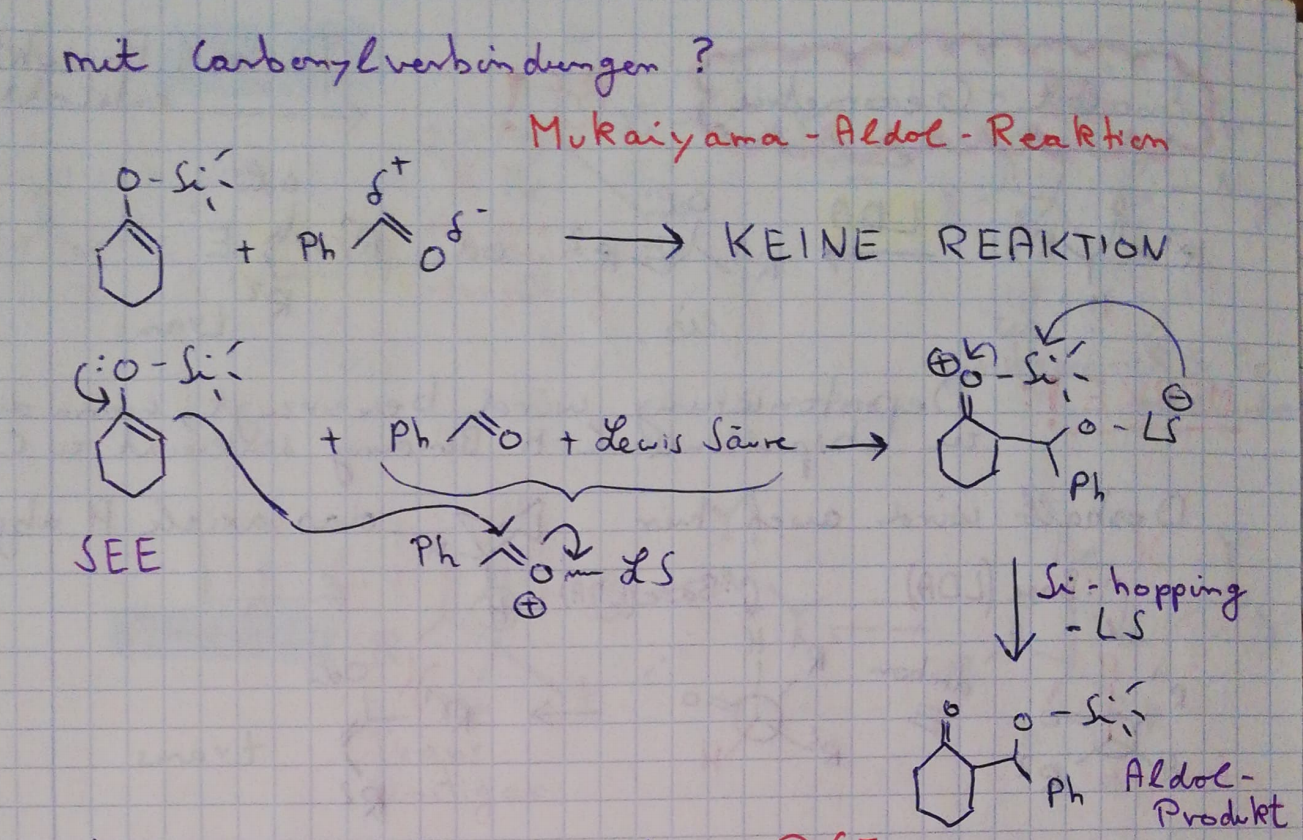 mit Carbonylverbindungen ?
Mukaiyama-Aldol-Reaktion
O-Si
δ+
+ Ph O δ- → KEINE REAKTION
:O-Si
⊕ O-Si
⊖
+ Ph O + Lewis Säure → O-LS
Ph
SEE
Ph O LS
⊕
Si-hopping
-LS
O O-Si
Ph Aldol-
Produkt